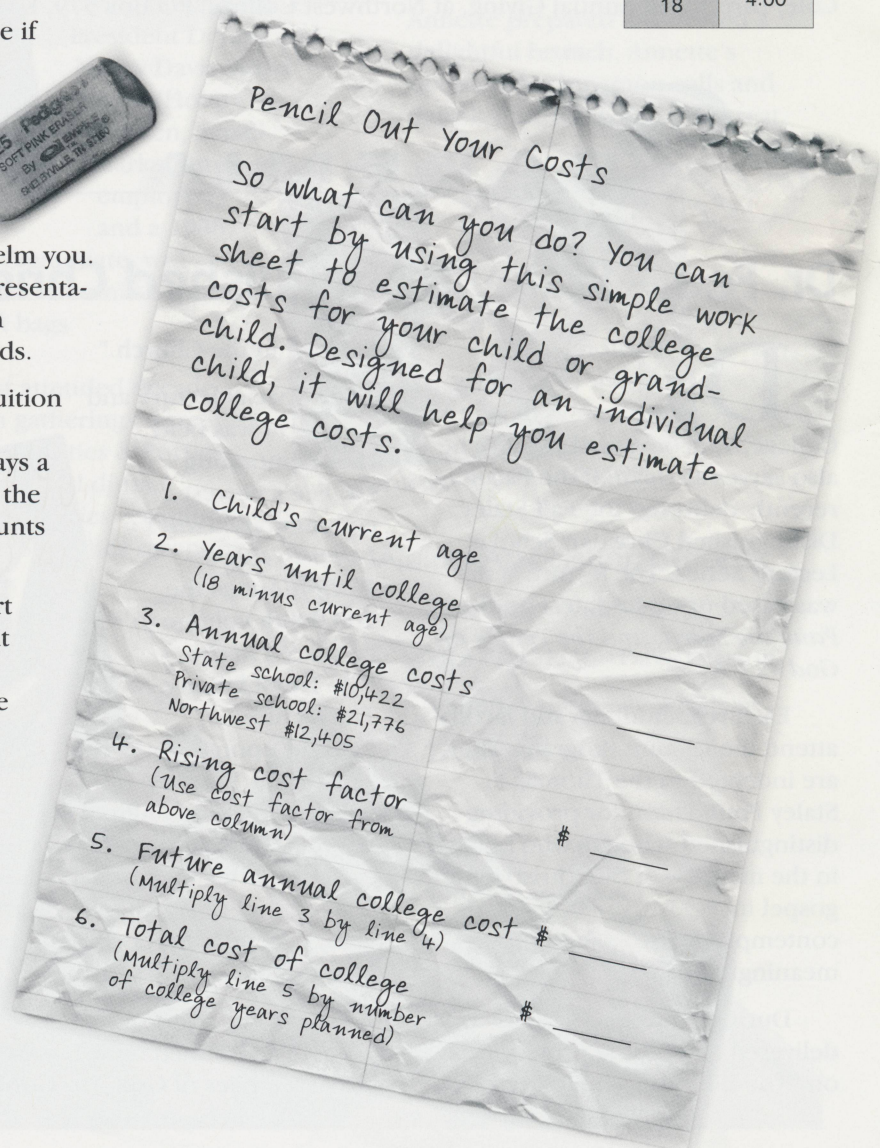 18 4.00
e if
Pedig
SOFT PINK ERASER
By
SHELBYVILLE, TN 37160
elm you.
resenta-
ds.
uition
ays a
the
unts
rt
t
e
Pencil Out Your Costs
So what can you do? You can
start by using this simple work
sheet to estimate the college
costs for your child or grand-
child. Designed for an individual
child, it will help you estimate
college costs.
1. Child's current age
2. Years until college
(18 minus current age)
3. Annual college costs
State school: $10,422
Private school: $21,776
Northwest $12,405
4. Rising cost factor
(Use cost factor from
above column)
$
5. Future annual college cost $
(Multiply line 3 by line 4)
6. Total cost of college $
(Multiply line 5 by number
of college years planned)